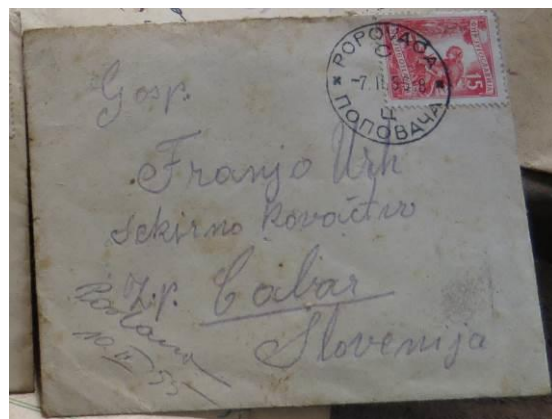 POPOVAČA
ПОПОВАЧА
15
Gosp.
Franjo Urh
sekirno kovačtvo
Z.p. Čabar
Slovenija
10 II 55